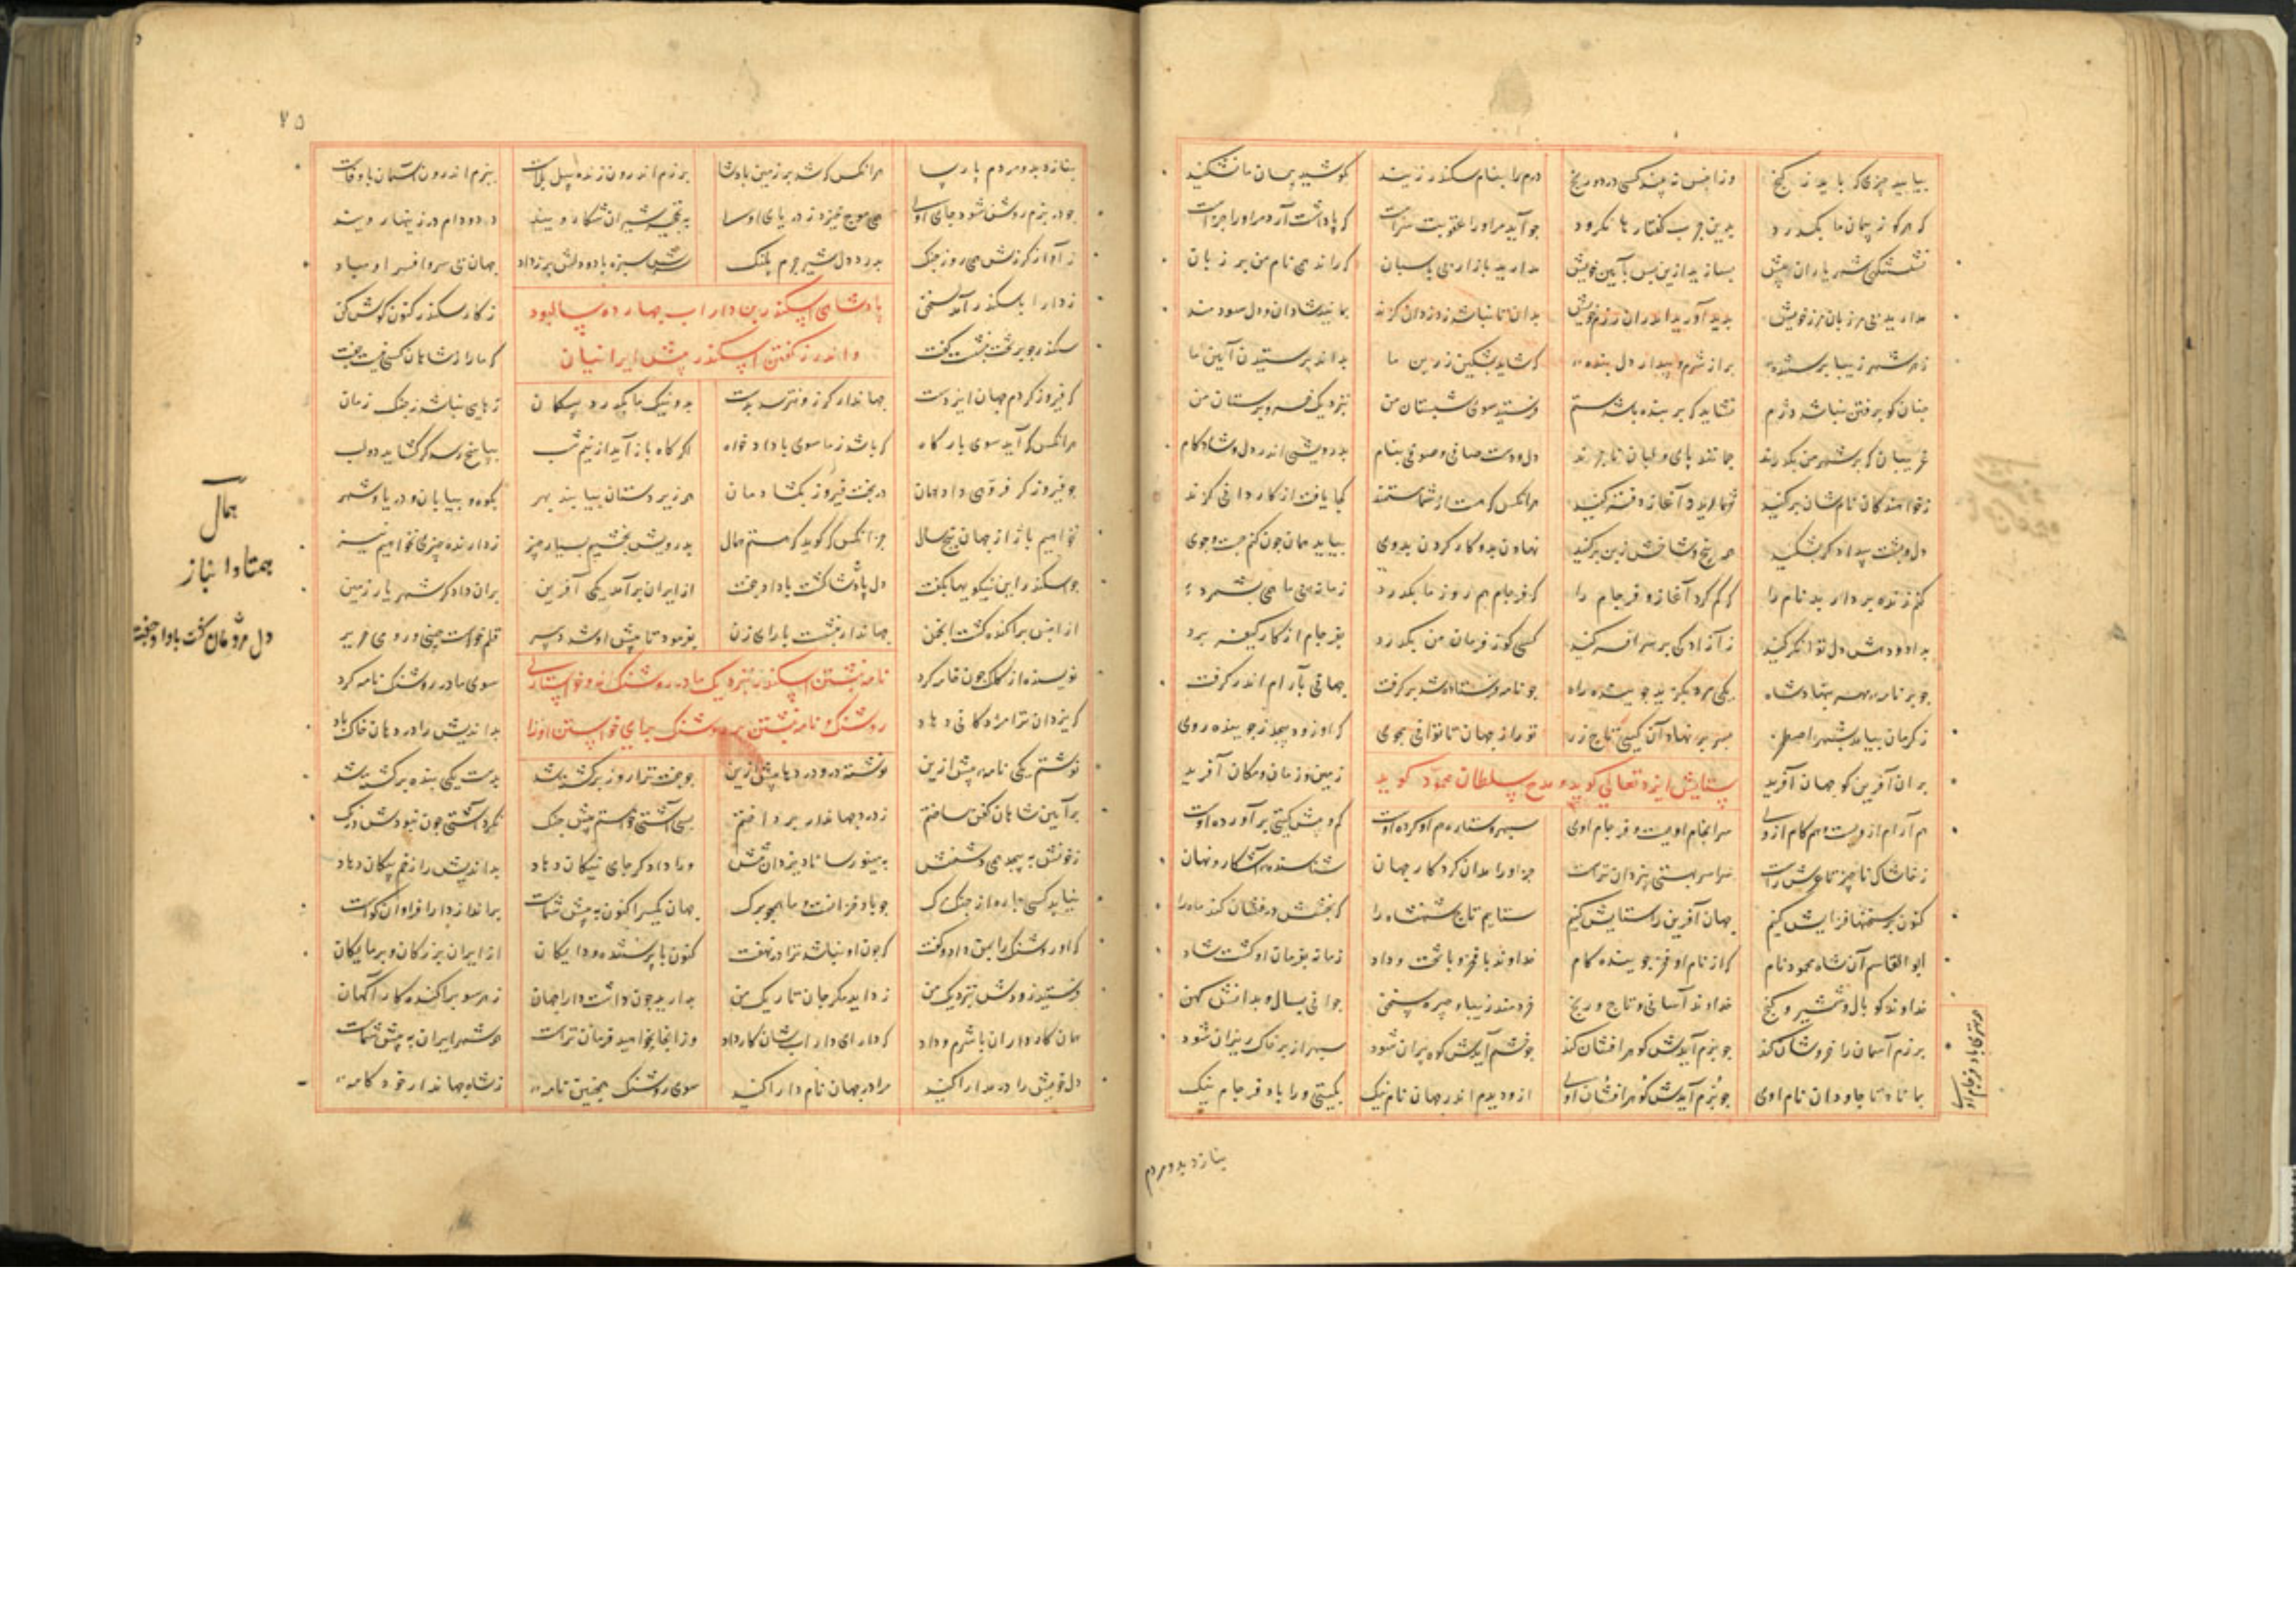 بیابید چیزی که باید ز گنج وزانپس نه چند کسی در ره رنج درم را بنام سکندر زنید بکوشید پیمان ما نشکنید
که هرکو ز پیمان ما بگذرد بدین چرب گفتار ها نگرود جو آید مر او را عقوبت سزاست که پاداشت آرد مر او را جزاست
نشستنگهی شهریاران پیش بسازید ازین پس بآیین خویش مدارید بازار بی پاسبان که راند همی نام من بر زبان
مدارید بی مرزبان مرز خویش بدید آورید اندران رزم خویش بدان تا نباشد ز دزدان گزند بمانید شادان و دل سودمند
ز هر شهر زیبا پرستنده پر از شرم و بیدار دل بنده که شاید بمشکین زرین ما بداند پرستیدن آیین ما
چنان کو برفتن نباشد دژم نشاید که بر بنده باشد ستم فرستید سوی شبستان من بنزدیک خسرو پرستان من
غریبان که بر شهر من بگذرند چمانند پای و لبان ناچرند دل و دست صافی و صوفی بنام بدرویشی اندر دل و شادکام
ز خواهندگان نام شان بر کنید شمار اندر آغاز دفتر کنید هرانکس که هست از شما مستمند کجا یافت از کاردانی گزند
دل و پشت بیدادگر بشکنید همه بیخ و شاخش ز بن بر کنید نهادن بد و کار کردن بدوی بیابد همان چون کنم جست و جوی
کنم زنده بر دار بد نام را که گم کرد آغاز و فرجام را که فرجام هم روز ما بگذرد زمانه پی ما همی بشمرد
بداد و دهش دل توانگر کنید ز آزادگی بر سر افسر کنید کسی کو ز فرمان من بگذرد بفرجام از کار کیفر برد
چو بر نامه مهر بنهاد شاه یکی مرد بگزید جوینده راه چو نامه فرستاده شد بر گرفت جهانی بآرام اندر گرفت
ز کرمان بیامد بشهر اصطخر بسر بر نهاد آن کیی تاج زر تو راز جهان تا توانی مجوی که او زود پیچد ز جوینده روی
ستایش ایزد تعالی گوید و مدح سلطان محمود گوید
بران آفرین کو جهان آفرید زمین و زمان و مکان آفرید
هم آرام ازویست و هم کام ازوی سرانجام اویست و فرجام اوی سپهر و ستاره هم او کرده اوست کم و بیش گیتی بر آورده اوست
ز خاشاک ناچیز تا عرش راست سراسر بهستی یزدان تراست جز او را مدان کردگار جهان شناسنده آشکار و نهان
کنون بر سخنها فزایش کنیم جهان آفرین را ستایش کنیم ستایم تاج شهنشاه را که بختش درفشان کند ماه را
ابو القاسم آن شاه محمود نام که از نام او فر جوینده کام خداوند با فر و با تخت و داد زمانه بفرمان او گشت شاد
خداوند کو بال و شمشیر و گنج خداوند آسانی و تاج و رنج خردمند زیبا و چیره سخن جوانی بسال و بدانش کهن
برزم آسمان را خروشان کند چو بزم آیدش گوهر افشان کند چو خشم آیدش کوه پران شود سپهر از بر خاک ریزان شود
بماناد تا جاودان نام اوی چو بزم آیدش گوهر افشان اوی ازو دیدم اندر جهان نام نیک بگیتی ورا باد فرجام نیک
همه بهتری باد فرجام اوی
بنازد بدو مردم
۷۵
بنازد بدو مردم پارسا هرانکس که شد بر زمین پادشا برزم اندرون زنده پیل بلاست ببزم اندرون آسمان با وفاست
چو در بزم روشن شود جای اوی همی موج خیزد ز دریای او به نخچیر شیران شکار ویند دد و دام در زینهار ویند
ز آواز گرزش همی روز جنگ بدرد دل شیر و چرم پلنگ سرش سبز باد و دلش پر ز داد جهان بی سر و افسر او مباد
پادشاهی اسکندر بن داراب چهارده سال بود
ز دارا باسکندر آمد سخن ز کار سکندر کنون گوش کن
و اندرز گفتن اسکندر پیش ایرانیان
سکندر چو بر تخت بنشست گفت که ما را ز شاهان کسی نیست جفت
که فیروز گردم جهان ایزدست جهاندار کزو نترسد بدست بد و نیک ما بگذرد بیگمان رهایی نباشد ز چنگ زمان
هرانکس که آید سوی بارگاه که باشد ز ما سوی ما دادخواه اگر گاه بار آید از نیم شب بپاسخ رسد گر گشاید دو لب
چو فیروزگر فرهی داد مان در بخت فیروز بگشاد مان هم زیر دستان بیابند بهر بکوه و بیابان و دریا و شهر
نخواهیم باژ از جهان پنج سال جز آنکس که گوید که هستم همال بدرویش بخشیم بسیار چیز ز دارنده چیزی نخواهیم نیز
چو اسکندر این نیکویها بگفت دل پادشا گشت با داد جفت از ایران بر آمد یکی آفرین بران دادگر شهریار زمین
از انپس پراگنده گشت انجمن جهاندار بنشست با رای زن بفرمود تا پیش او شد دبیر قلم خواست چینی و رومی حریر
نامه نبشتن اسکندر بنزدیک مادر روشنک
نویسنده از کلک چون خامه کرد سوی مادر روشنک نامه کرد
روشنک و نامه نبشتن بر روشنک
که یزدان ترا مزدگانی دهاد بداندیش را در دهان خاک باد
نوشتم یکی نامه پیش ازین نوشته درو دردها پیش ازین چو جفت ترا روز برگشته شد بدست یکی بنده بر کشته شد
بر آیین شاهان کفن ساختم ز درد جهاندار پرداختم بسی آشتی خواستم پیش جنگ نکرد آشتی چون نبودش درنگ
ز خونش به پیچد همی دشمنش به مینو رساناد یزدان تنش ورا داد گر جای نیکان دهاد بداندیش را زخم پیکان دهاد
نیابد کسی چاره از چنگ مرگ چو باد خزانست و ما همچو برگ جهان یکسر اکنون به پیش شماست بر اندرز دارا فراوان گواست
که او روشنک را بمن داد و گفت که چون او نباشد ترا در نهفت کنون با پرستنده و دایگان از ایران بزرگان و پرمایگان
فرستید زودش بنزدیک من زداید مگر جان تاریک من بدارید چون داشت دارا جهان ز هر سو پراگنده کار آگهان
همان کارداران با شرم و داد که دارای داراب شان کار داد وز انجا بخواهید فرمان تراست همه شهر ایران به پیش شماست
دل خویش را در مدارا کنید مرا در جهان نام دارا کنید سوی روشنک همچنین نامه ز شاه جهاندار خود کامه
همال
همتا و انباز
دل مردمان گفت با داد جفت